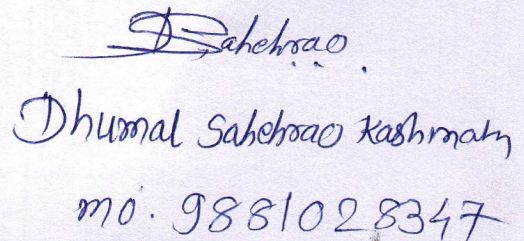 DSahebrao
Dhumal Sahebrao Kashinath
mo. 9881028347